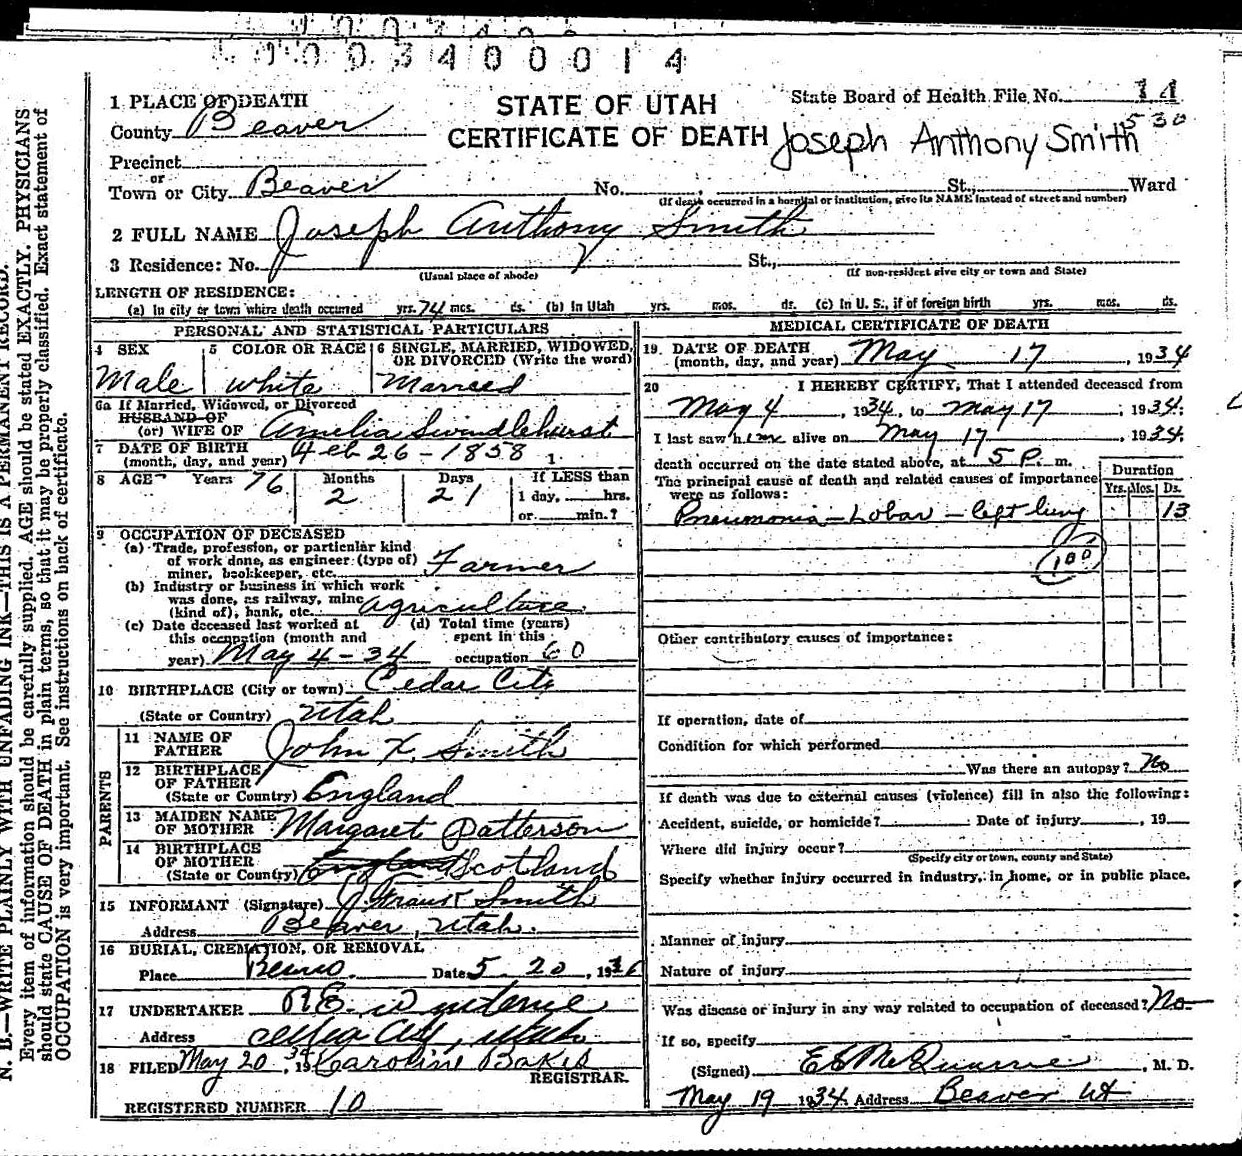 003400014
1 PLACE OF DEATH
STATE OF UTAH
CERTIFICATE OF DEATH
State Board of Health File No. 14
530
Joseph Anthony Smith
County Beaver
Precinct
or
Town or City Beaver No. St., Ward
(If death occurred in a hospital or institution, give its NAME instead of street and number)
2 FULL NAME Joseph Anthony Smith
3 Residence: No. St.,
(Usual place of abode) (If non-resident give city or town and State)
LENGTH OF RESIDENCE:
(a) In city or town where death occurred yrs. 74 mos. ds. (b) In Utah yrs. mos. ds. (c) In U. S., if of foreign birth yrs. mos. ds.
PERSONAL AND STATISTICAL PARTICULARS
4 SEX
Male
5 COLOR OR RACE
white
6 SINGLE, MARRIED, WIDOWED,
OR DIVORCED (Write the word)
Married
6a If Married, Widowed, or Divorced
HUSBAND OF
(or) WIFE OF Amelia Swindlehurst
7 DATE OF BIRTH
(month, day, and year) Feb 26 - 1858
8 AGE Years 76 Months 2 Days 21 If LESS than
1 day, hrs.
or min.?
9 OCCUPATION OF DECEASED
(a) Trade, profession, or particular kind
of work done, as engineer (type of)
miner, bookkeeper, etc. Farmer
(b) Industry or business in which work
was done, as railway, mine
(kind of), bank, etc. agriculture
(c) Date deceased last worked at
this occupation (month and
year) May 4 - 34
(d) Total time (years)
spent in this
occupation 60
10 BIRTHPLACE (City or town) Cedar City
(State or Country) Utah
PARENTS
11 NAME OF
FATHER John X. Smith
12 BIRTHPLACE
OF FATHER
(State or Country) England
13 MAIDEN NAME
OF MOTHER Margaret Patterson
14 BIRTHPLACE
OF MOTHER
(State or Country) England Scotland
15 INFORMANT (Signature) Smith
Address Beaver, Utah.
16 BURIAL, CREMATION, OR REMOVAL
Place Date 5 20, 19
17 UNDERTAKER
Address Utah
18 FILED May 20, 1934 Caroline
REGISTRAR
REGISTERED NUMBER 10
MEDICAL CERTIFICATE OF DEATH
19. DATE OF DEATH
(month, day, and year) May 17, 1934
20 I HEREBY CERTIFY, That I attended deceased from
May 4, 1934, to May 17, 1934.
I last saw him alive on May 17, 1934.
death occurred on the date stated above, at 5 P. m.
The principal cause of death and related causes of importance
were as follows:
Duration
Yrs. Mos. Ds.
Pneumonia - Lobar - left lung 13
100
Other contributory causes of importance:
If operation, date of
Condition for which performed
Was there an autopsy? No
If death was due to external causes (violence) fill in also the following:
Accident, suicide, or homicide? Date of injury, 19
Where did injury occur?
(Specify city or town, county and State)
Specify whether injury occurred in industry, in home, or in public place.
Manner of injury
Nature of injury
Was disease or injury in any way related to occupation of deceased? No
If so, specify
(Signed), M. D.
May 19 1934. Address Beaver Ut
N. B.—WRITE PLAINLY WITH UNFADING INK—THIS IS A PERMANENT RECORD.
Every item of information should be carefully supplied. AGE should be stated EXACTLY. PHYSICIANS
should state CAUSE OF DEATH in plain terms, so that it may be properly classified. Exact statement of
OCCUPATION is very important. See instructions on back of certificate.